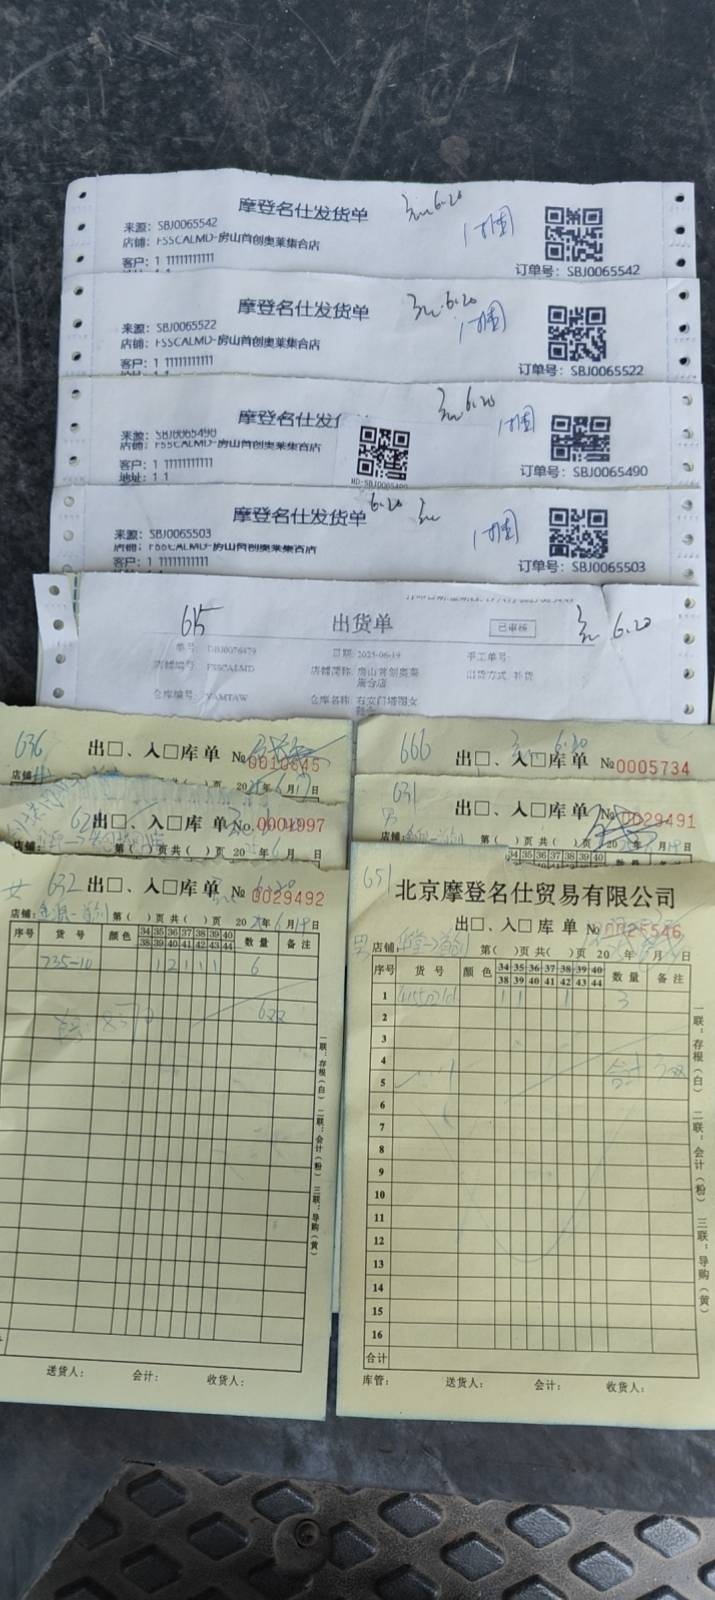 摩登名仕发货单 6.20
来源: SBJ0065542
店铺: FSSCALMD-房山首创奥莱集合店
客户: 1 11111111111
订单号: SBJ0065542
摩登名仕发货单 6.20
来源: SBJ0065522
店铺: FSSCALMD-房山首创奥莱集合店
客户: 1 11111111111
订单号: SBJ0065522
摩登名仕发 6.20
来源: SBJ0065490
店铺: FSSCALMD-房山首创奥莱集合店
客户: 1 11111111111
地址: 1 1
MD-SBJ0065490
订单号: SBJ0065490
摩登名仕发货单 6.20
来源: SBJ0065503
店铺: FSSCALMD-房山首创奥莱集合店
客户: 1 11111111111
订单号: SBJ0065503
615 出货单 已审核 6.20
单号: DBJ0076479 日期: 2025-06-19 手工单号:
店铺编号: FSSCALMD 店铺简称: 房山首创奥莱集合店 出货方式: 补货
仓库编号: YAMTAW 仓库名称: 右安门塔图女鞋仓
636 出□、入□库单 №0010645
店铺: 页 20 年 6月 日
666 出□、入□库单 №0005734
出□、入□库单 No.0001997
店铺: 第( )页共( )页 20 年 6月 日
631 出□、入□库单 №0029491
男
店铺: 第( )页共( )页 20 年 月 日
34 35 36 37 38 39 40 数量 备注
女 632 出□、入□库单 №0029492
店铺: 第( )页共( )页 20 年 6月19日
序号 货号 颜色 34 35 36 37 38 39 40 数量 备注
38 39 40 41 42 43 44
735-10 1 2 1 1 1 6
一联:存根(白) 二联:会计(粉) 三联:导购(黄)
送货人: 会计: 收货人:
651 北京摩登名仕贸易有限公司
出□、入□库单 №0025546
男 店铺: 第( )页共( )页 20 年 月 日
序号 货号 颜色 34 35 36 37 38 39 40 数量 备注
38 39 40 41 42 43 44
1 1 1 1 3
2
3
4 合计
5
6
7
8
9
10
11
12
13
14
15
16
合计
一联:存根(白) 二联:会计(粉) 三联:导购(黄)
库管: 送货人: 会计: 收货人: